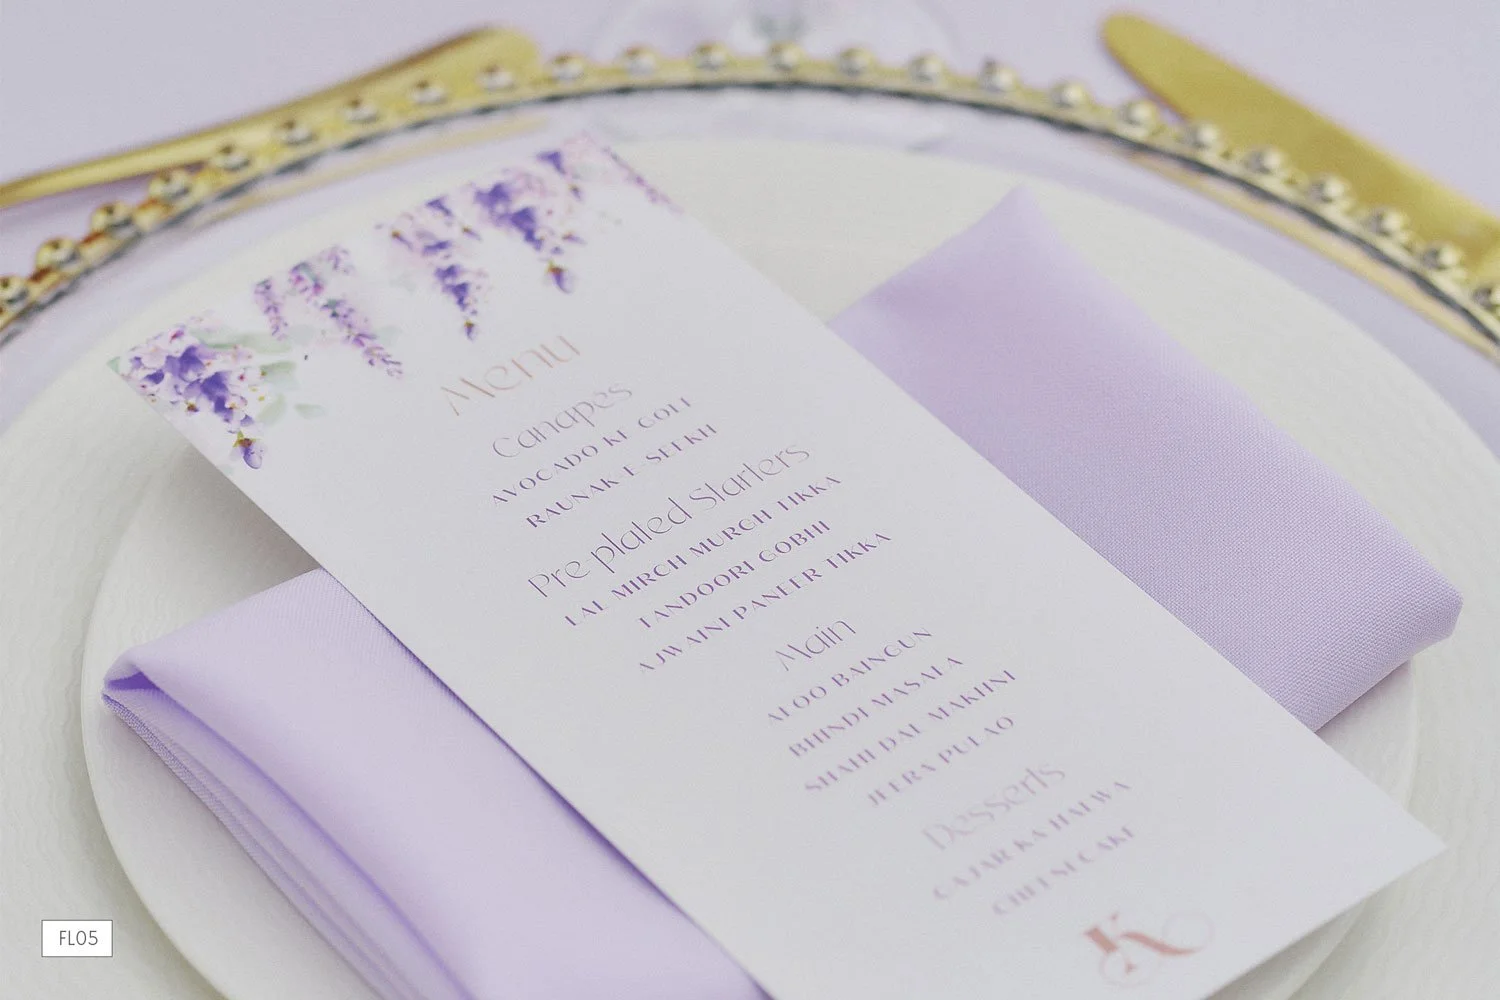 Menu
Canapes
AVOCADO KE GOLI
RAUNAK E SEEKH
Pre plated Starters
LAL MIRCH MURGH TIKKA
TANDOORI GOBHI
AJWAINI PANEER TIKKA
Main
ALOO BAINGUN
BHINDI MASALA
SHAHI DAL MAKHNI
JEERA PULAO
Desserts
GAJAR KA HALWA
CHEESECAKE
K
FL05